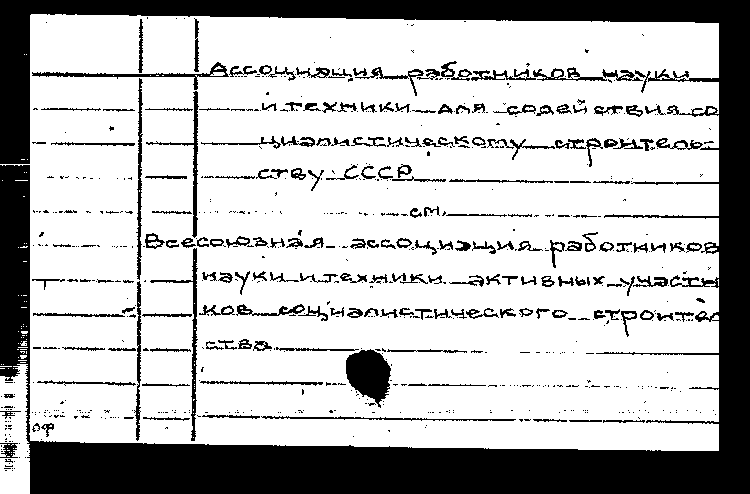 Ассоциация работников науки
и техники для содействия со
циалистическому строитель-
ству СССР
см.
Всесоюзная ассоциация работников
науки и техники активных участн
ков социалистического строител
ства